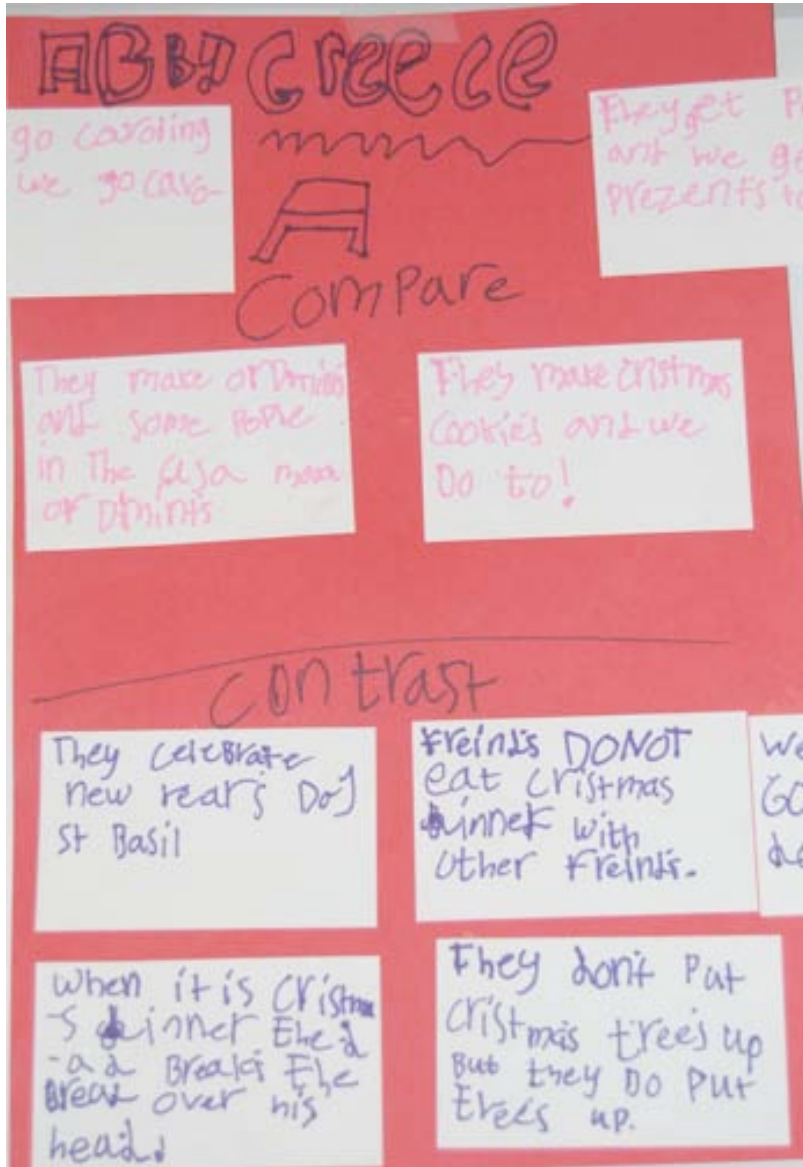 ABBY Greece
go caroling
we go caro-
They get P
and we ge
prezents to
A
Compare
They make orDmini
and some People
in The usa make
or Dminits
They make cristmas
cookies and we
Do to!
contrast
They celebrate
new years Day
St Basil
Freinds DO NOT
eat cristmas
dinner with
other Freinds.
We
GO
de
When it is cristma
-s dinner the d
-ad Breaks the
Bread over his
head.
They don't Put
cristmas trees up
But they Do Put
trees up.